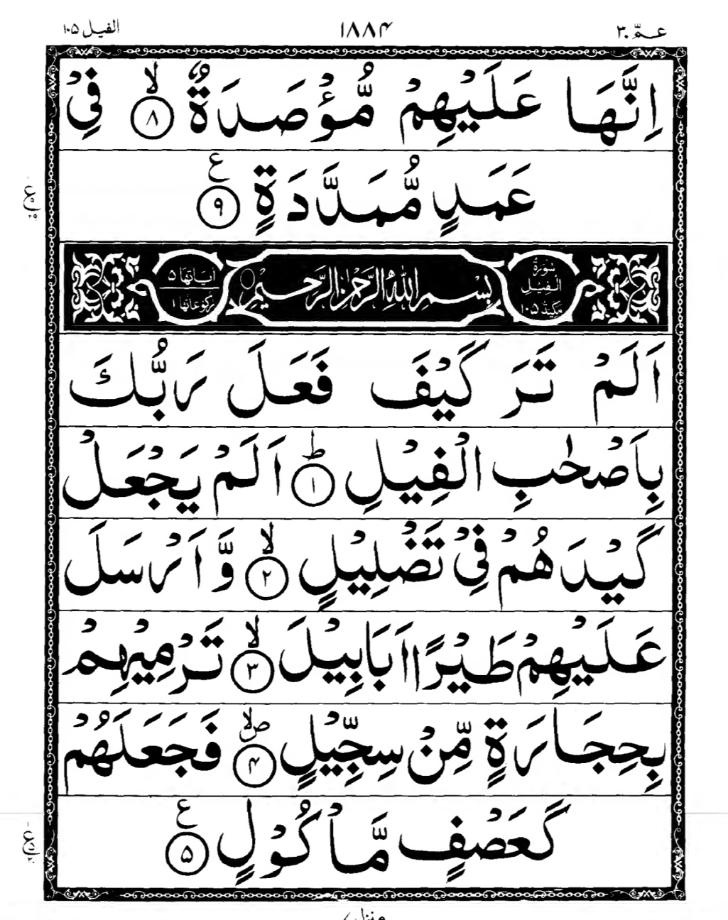 عـمّ ٣٠ ١٨٨۴ الفيل ١٠٥
اِنَّهَا عَلَيْهِمْ مُّؤْصَدَةٌ ۙ﴿٨﴾ فِيْ
عَمَدٍ مُّمَدَّدَةٍ ﴿٩﴾ ع
سُوْرَةُ الْفِيْلِ مَكِّيَّةٌ ١٠٥ بِسْمِ اللهِ الرَّحْمٰنِ الرَّحِيْمِ اٰيَاتُهَا ٥ رُكُوْعَاتُهَا ١
اَلَمْ تَرَ كَيْفَ فَعَلَ رَبُّكَ
بِاَصْحٰبِ الْفِيْلِ ؕ﴿١﴾ اَلَمْ يَجْعَلْ
كَيْدَهُمْ فِيْ تَضْلِيْلٍ ۙ﴿٢﴾ وَّاَرْسَلَ
عَلَيْهِمْ طَيْرًا اَبَابِيْلَ ۙ﴿٣﴾ تَرْمِيْهِمْ
بِحِجَارَةٍ مِّنْ سِجِّيْلٍ ۪ۙ﴿۴﴾ فَجَعَلَهُمْ
كَعَصْفٍ مَّاْكُوْلٍ ﴿۵﴾ ع
منزل ٧